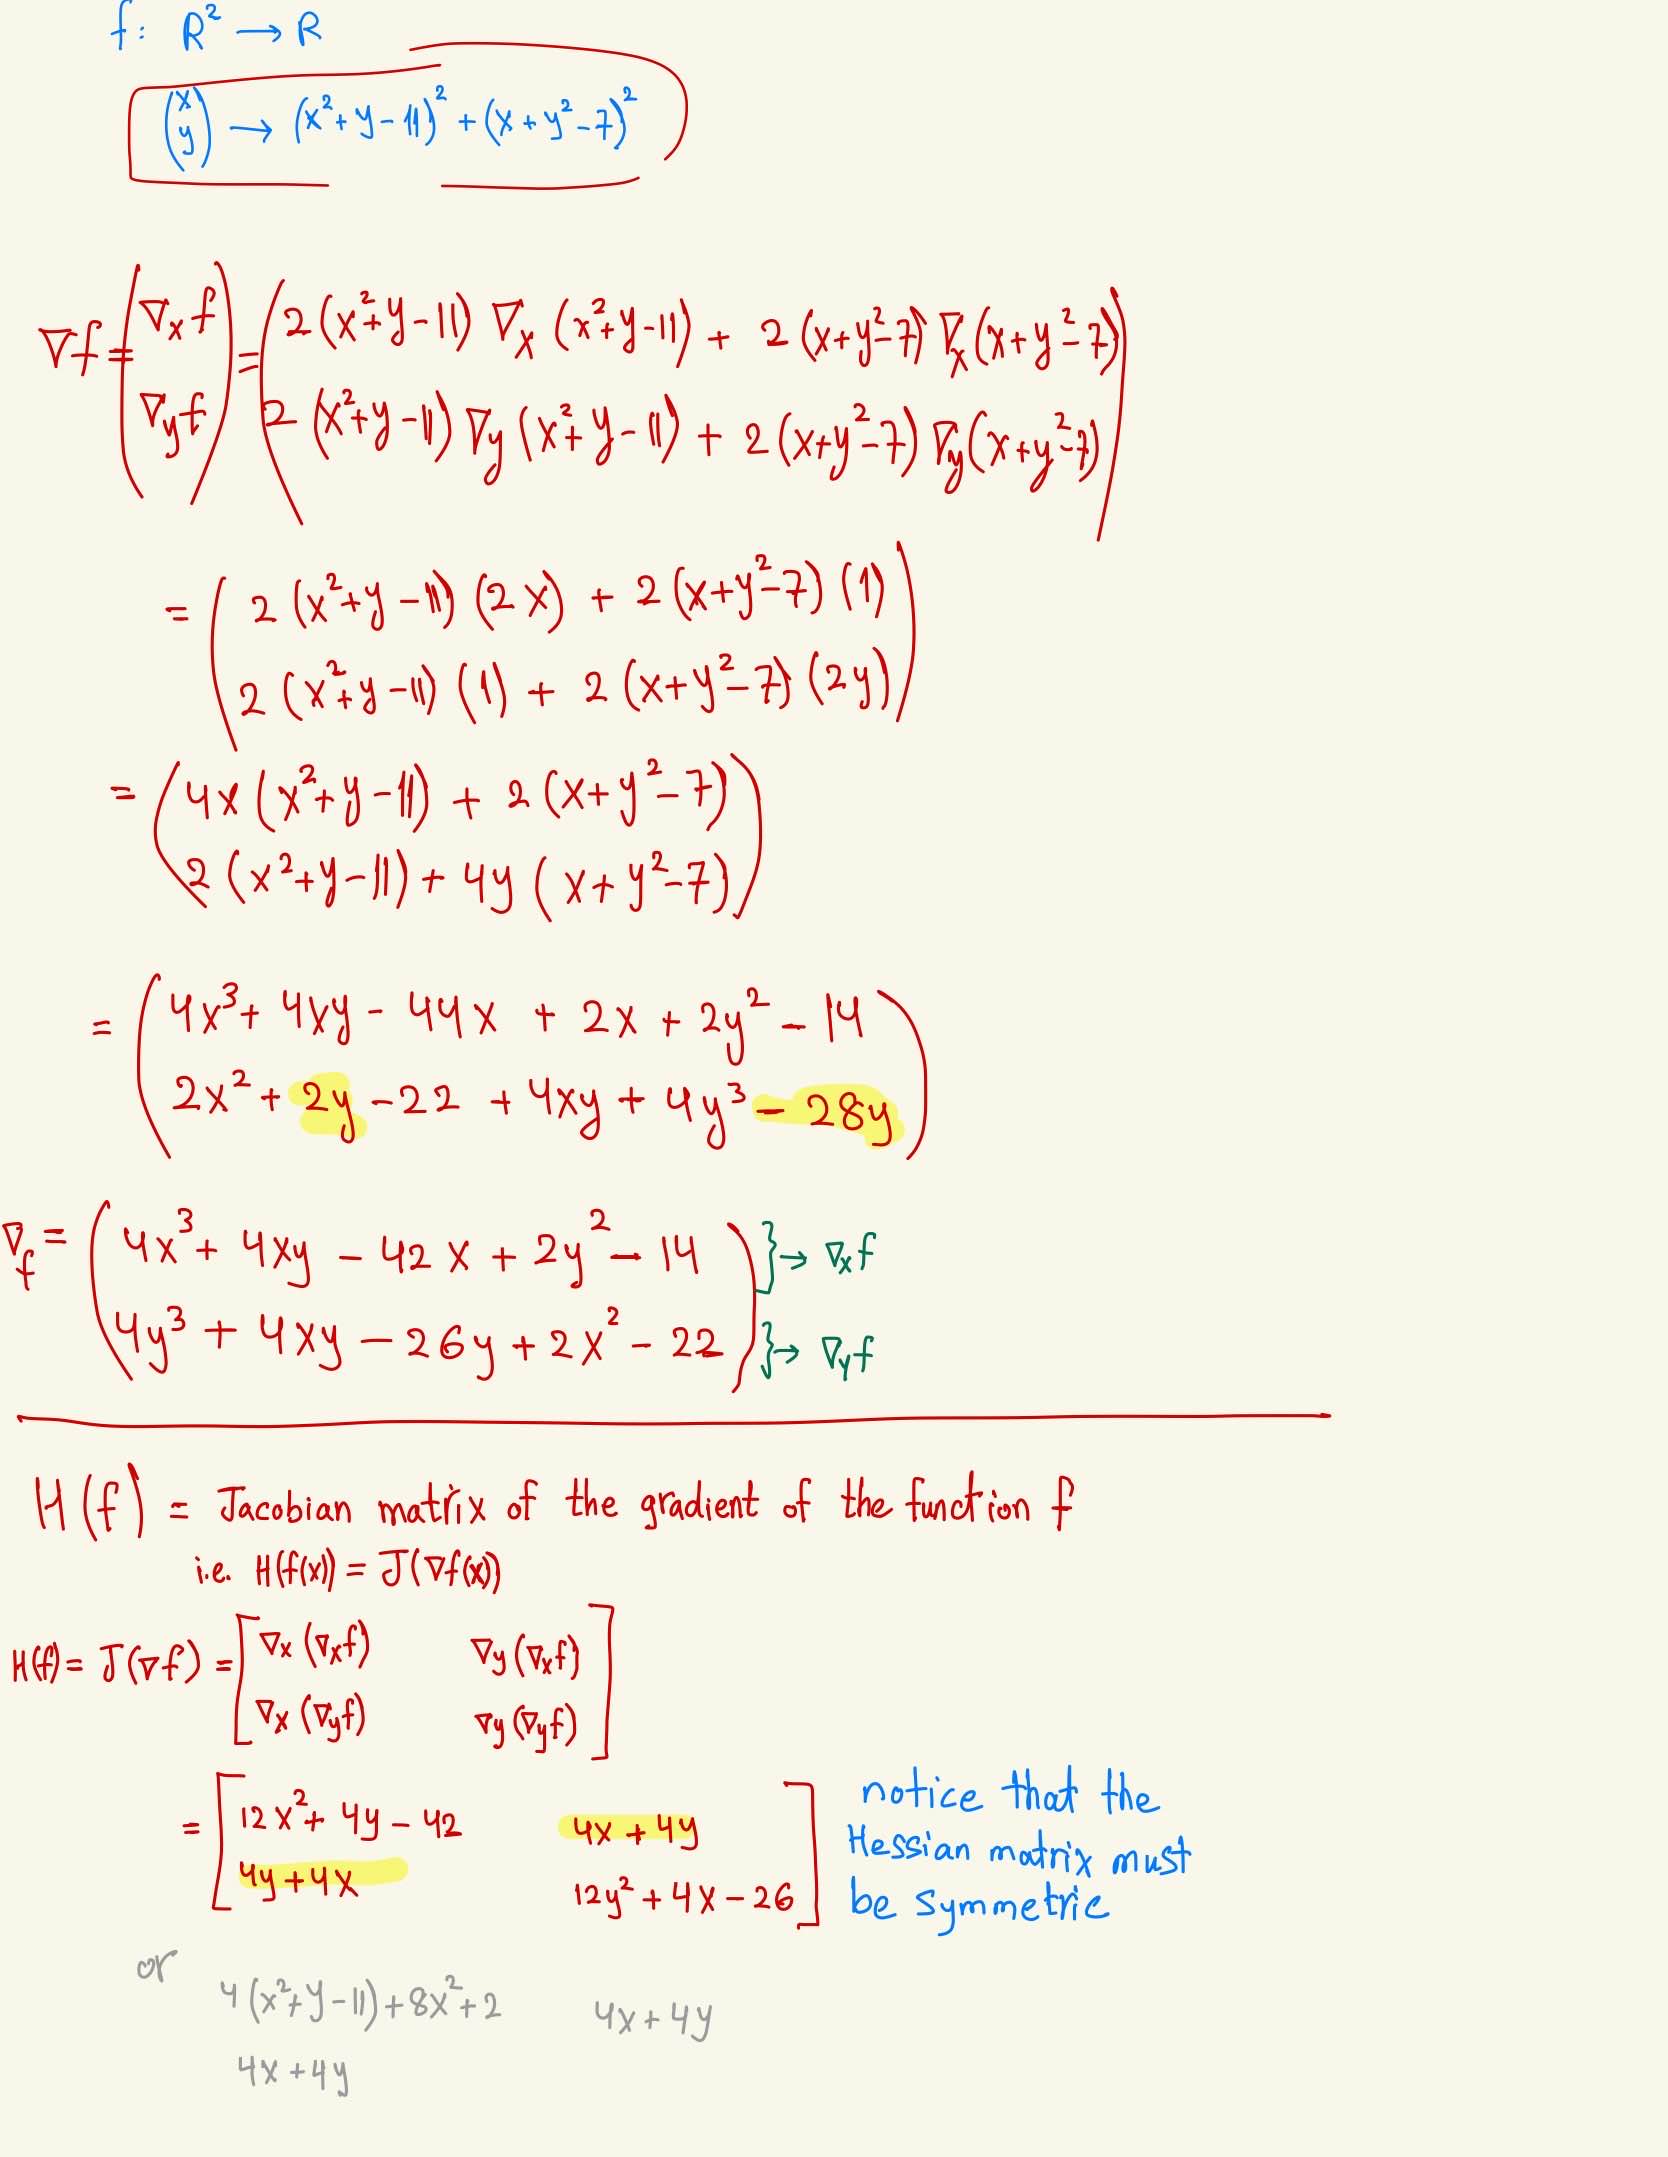 f: R² → R
(x y) → (x²+y-11)² + (x+y²-7)²
∇f = (∇ₓf ∇yf) = (2(x²+y-11) ∇ₓ(x²+y-11) + 2(x+y²-7) ∇ₓ(x+y²-7)
2(x²+y-11) ∇y(x²+y-11) + 2(x+y²-7) ∇y(x+y²-7))
= (2(x²+y-11)(2x) + 2(x+y²-7)(1)
2(x²+y-11)(1) + 2(x+y²-7)(2y))
= (4x(x²+y-11) + 2(x+y²-7)
2(x²+y-11) + 4y(x+y²-7))
= (4x³+4xy-44x + 2x + 2y²-14
2x²+2y-22 + 4xy + 4y³-28y)
∇f = (4x³+4xy-42x+2y²-14) } → ∇ₓf
(4y³+4xy-26y+2x²-22) } → ∇yf
H(f) = Jacobian matrix of the gradient of the function f
i.e. H(f(x)) = J(∇f(x))
H(f) = J(∇f) = [∇ₓ(∇ₓf) ∇y(∇ₓf)
∇ₓ(∇yf) ∇y(∇yf)]
= [12x²+4y-42 4x+4y
4y+4x 12y²+4x-26]
notice that the
Hessian matrix must
be symmetric
or
4(x²+y-11)+8x²+2 4x+4y
4x+4y